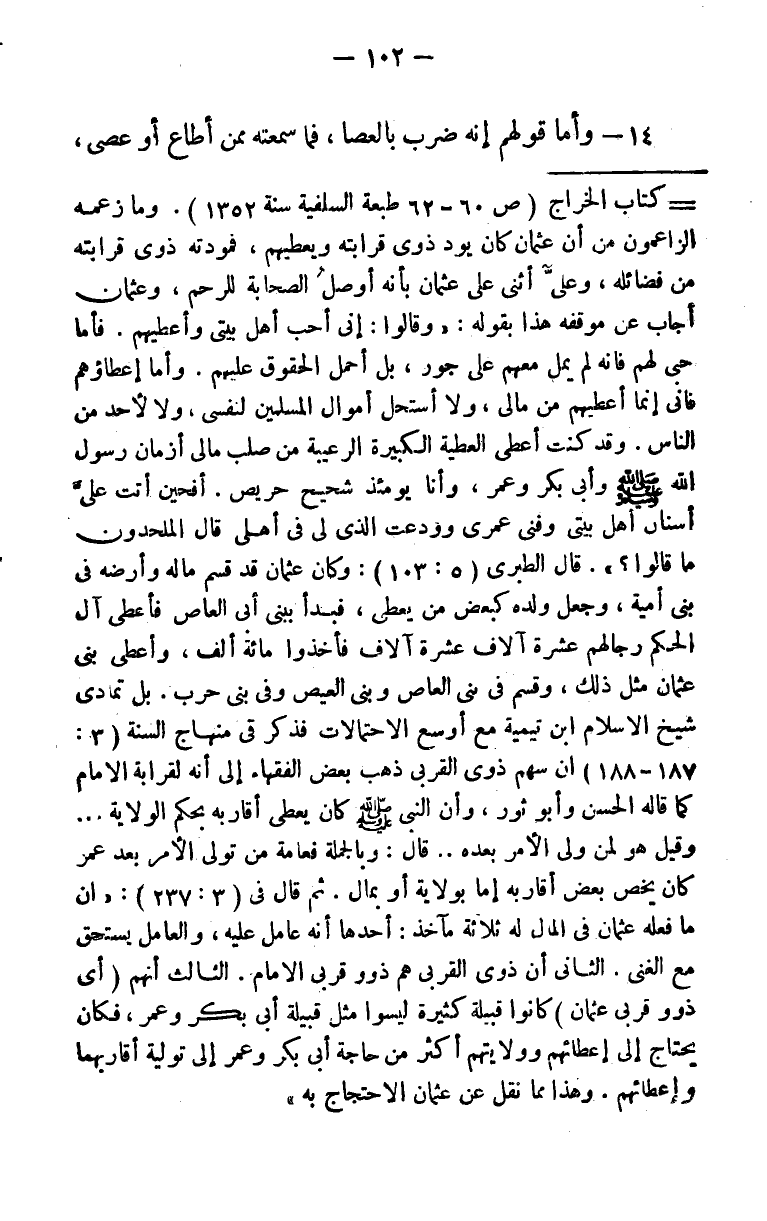 — ١٠٢ —
١٤ — وأما قولهم إنه ضرب بالعصا ، فما سمعته ممن أطاع أو عصى ،
= كتاب الخراج ( ص ٦٠ – ٦٢ طبعة السلفية سنة ١٣٥٢ ) . وما زعمه
الزاعمون من أن عثمان كان يود ذوى قرابته ويعطيهم ، فمودته ذوى قرابته
من فضائله ، وعلىٌّ أثنى على عثمان بأنه أوصلُ الصحابة للرحم ، وعثمان
أجاب عن موقفه هذا بقوله : « وقالوا : إنى أحب أهل بيتى وأعطيهم . فأما
حبى لهم فانه لم يمل معهم على جور ، بل أحمل الحقوق عليهم . وأما إعطاؤهم
فانى إنما أعطيهم من مالى ، ولا أستحل أموال المسلمين لنفسى ، ولا لأحد من
الناس . وقد كنت أعطى العطية الكبيرة الرعيبة من صلب مالى أزمان رسول
الله ﷺ وأبى بكر وعمر ، وأنا يومئذ شحيح حريص . أفحين أتت علىَّ
أسنان أهل بيتى وفنى عمرى وودعت الذى لى فى أهلى قال الملحدون
ما قالوا ؟ » . قال الطبرى ( ٥ : ١٠٣ ) : وكان عثمان قد قسم ماله وأرضه فى
بنى أمية ، وجعل ولده كبعض من يعطى ، فبدأ ببنى أبى العاص فأعطى آل
الحكم رجالهم عشرة آلاف عشرة آلاف فأخذوا مائة ألف ، وأعطى بنى
عثمان مثل ذلك ، وقسم فى بنى العاص وبنى العيص وفى بنى حرب . بل تمادى
شيخ الاسلام ابن تيمية مع أوسع الاحتمالات فذكر فى منهاج السنة ( ٣ :
١٨٧ – ١٨٨ ) ان سهم ذوى القربى ذهب بعض الفقهاء إلى أنه لقرابة الامام
كما قاله الحسن وأبو ثور ، وأن النبى ﷺ كان يعطى أقاربه بحكم الولاية ...
وقيل هو لمن ولى الأمر بعده .. قال : وبالجملة فعامة من تولى الأمر بعد عمر
كان يخص بعض أقاربه إما بولاية أو بمال . ثم قال فى ( ٣ : ٢٣٧ ) : « ان
ما فعله عثمان فى المال له ثلاثة مآخذ : أحدها أنه عامل عليه ، والعامل يستحق
مع الغنى . الثانى أن ذوى القربى هم ذوو قربى الامام . الثالث أنهم ( أى
ذوو قربى عثمان ) كانوا قبيلة كثيرة ليسوا مثل قبيلة أبى بكر وعمر ، فكان
يحتاج إلى إعطائهم وولايتهم أكثر من حاجة أبى بكر وعمر إلى تولية أقاربهما
وإعطائهم . وهذا مما نقل عن عثمان الاحتجاج به »